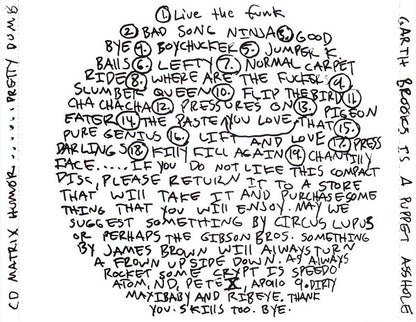 1. Live the funk
2. BAD SONG NINJA 3. GOOD
BYE 4. BOYCHUCKER 5. JUMPER K
BALLS 6. LEFTY 7. NORMAL CARPET
RIDE 8. WHERE ARE THE FUCKERS 9.
SLUMBER QUEEN 10. FLIP THE BIRD 11.
CHA CHACHA 12. PRESSURES ON 13. PIGEON
EATER 14. THE PASTE YOU LOVE THAT 15.
PURE GENIUS 16. LIFT AND LOVE 17. PRESS
DARLINGS 18. KITTY FILL AGAIN 19. CHANTILLY
FACE..... IF YOU DO NOT LIKE THIS COMPACT
DISC, PLEASE RETURN IT TO A STORE
THAT WILL TAKE IT AND PURCHASE SOME
THING THAT YOU WILL ENJOY. MAY WE
SUGGEST SOMETHING BY CIRCUS LUPUS
OR PERHAPS THE GIBSON BROS. SOMETHING
BY JAMES BROWN WILL ALWAYS TURN
A FROWN UPSIDE DOWN. AS ALWAYS
ROCKET SOME CRYPT IS SPEEDO
ATOM, ND, PETE X, APOLLO 9. DIRTY
MAXIBABY AND RIBEYE. THANK
YOU. SKILLS TOO. BYE.
GARTH BROOKSES IS A PUPPET ASSHOLE